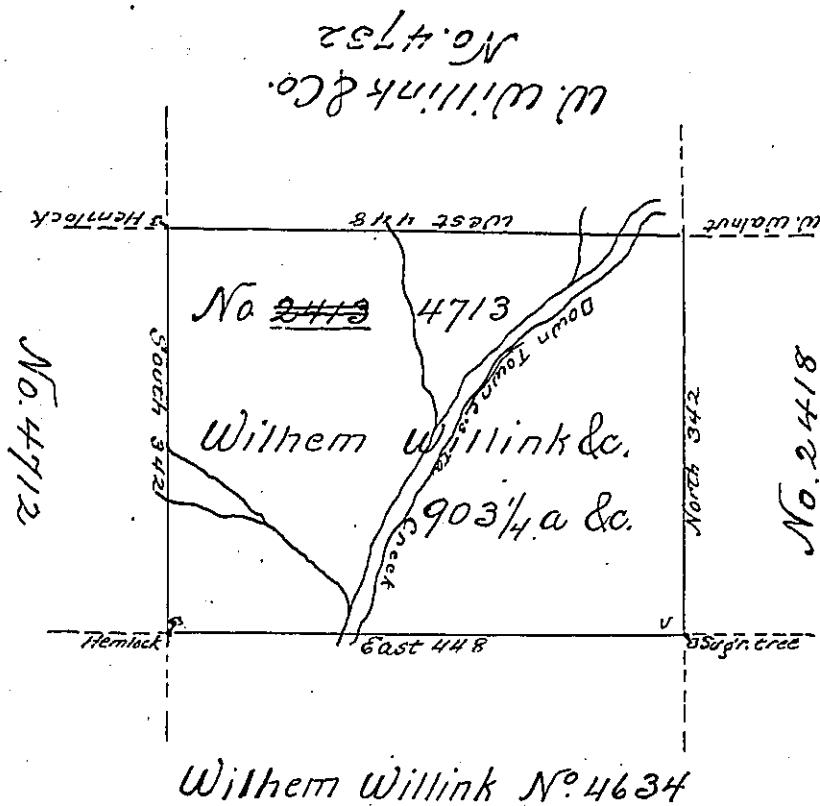 W. Willink & Co.
No. 4732
Hemlock
West 448
W. Walnut
No 2413 4713
Down Townesito Creek
South 342
No. 4712
Wilhem Willink &c.
903 1/4 a &c.
North 342
No. 2418
Hemlock
East 448
Sugr. tree
Wilhem Willink No. 4634